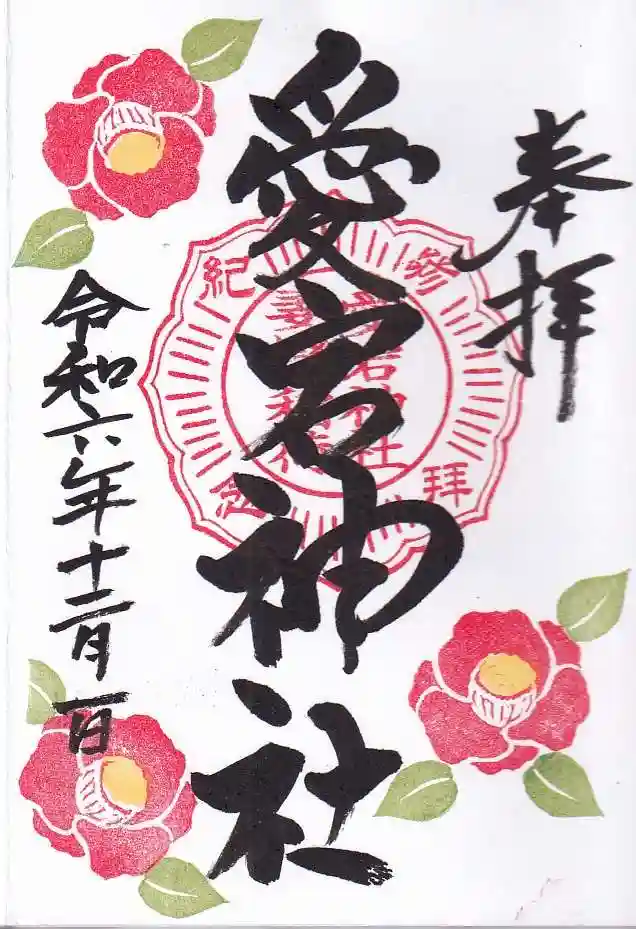 奉拝
愛宕神社
参拝
紀念
令和六年十二月一日